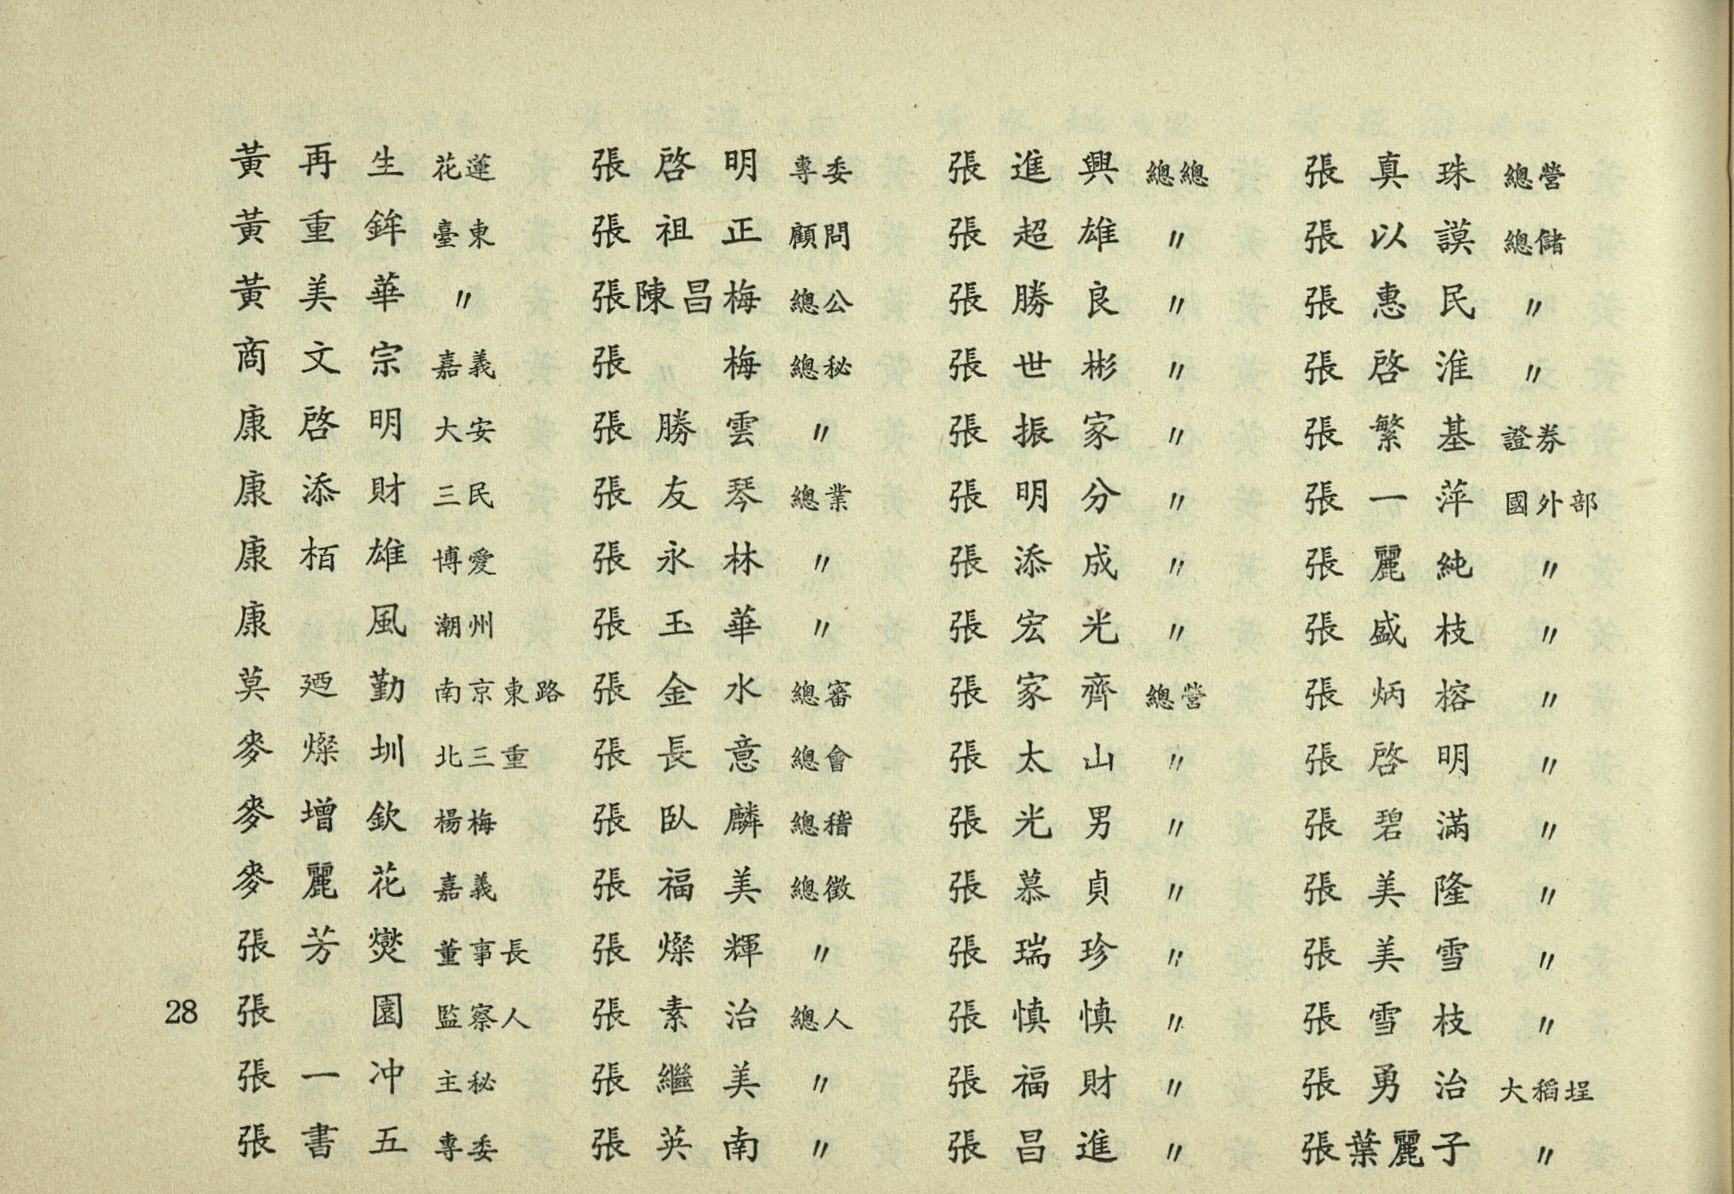 黃再生 花蓮
黃重鉾 臺東
黃美華 〃
商文宗 嘉義
康啓明 大安
康添財 三民
康栢雄 博愛
康風 潮州
莫廼勤 南京東路
麥燦圳 北三重
麥增欽 楊梅
麥麗花 嘉義
張芳燮 董事長
張園 監察人
張一冲 主秘
張書五 專委
張啓明 專委
張祖正 顧問
張陳昌梅 總公
張梅 總秘
張勝雲 〃
張友琴 總業
張永林 〃
張玉華 〃
張金水 總審
張長意 總會
張臥麟 總稽
張福美 總徵
張燦輝 〃
張素治 總人
張繼美 〃
張英南 〃
張進興 總總
張超雄 〃
張勝良 〃
張世彬 〃
張振家 〃
張明分 〃
張添成 〃
張宏光 〃
張家齊 總營
張太山 〃
張光男 〃
張慕貞 〃
張瑞珍 〃
張慎慎 〃
張福財 〃
張昌進 〃
張真珠 總營
張以謨 總儲
張惠民 〃
張啓淮 〃
張繁基 證券
張一萍 國外部
張麗純 〃
張盛枝 〃
張炳榕 〃
張啓明 〃
張碧滿 〃
張美隆 〃
張美雪 〃
張雪枝 〃
張勇治 大稻埕
張葉麗子 〃
28